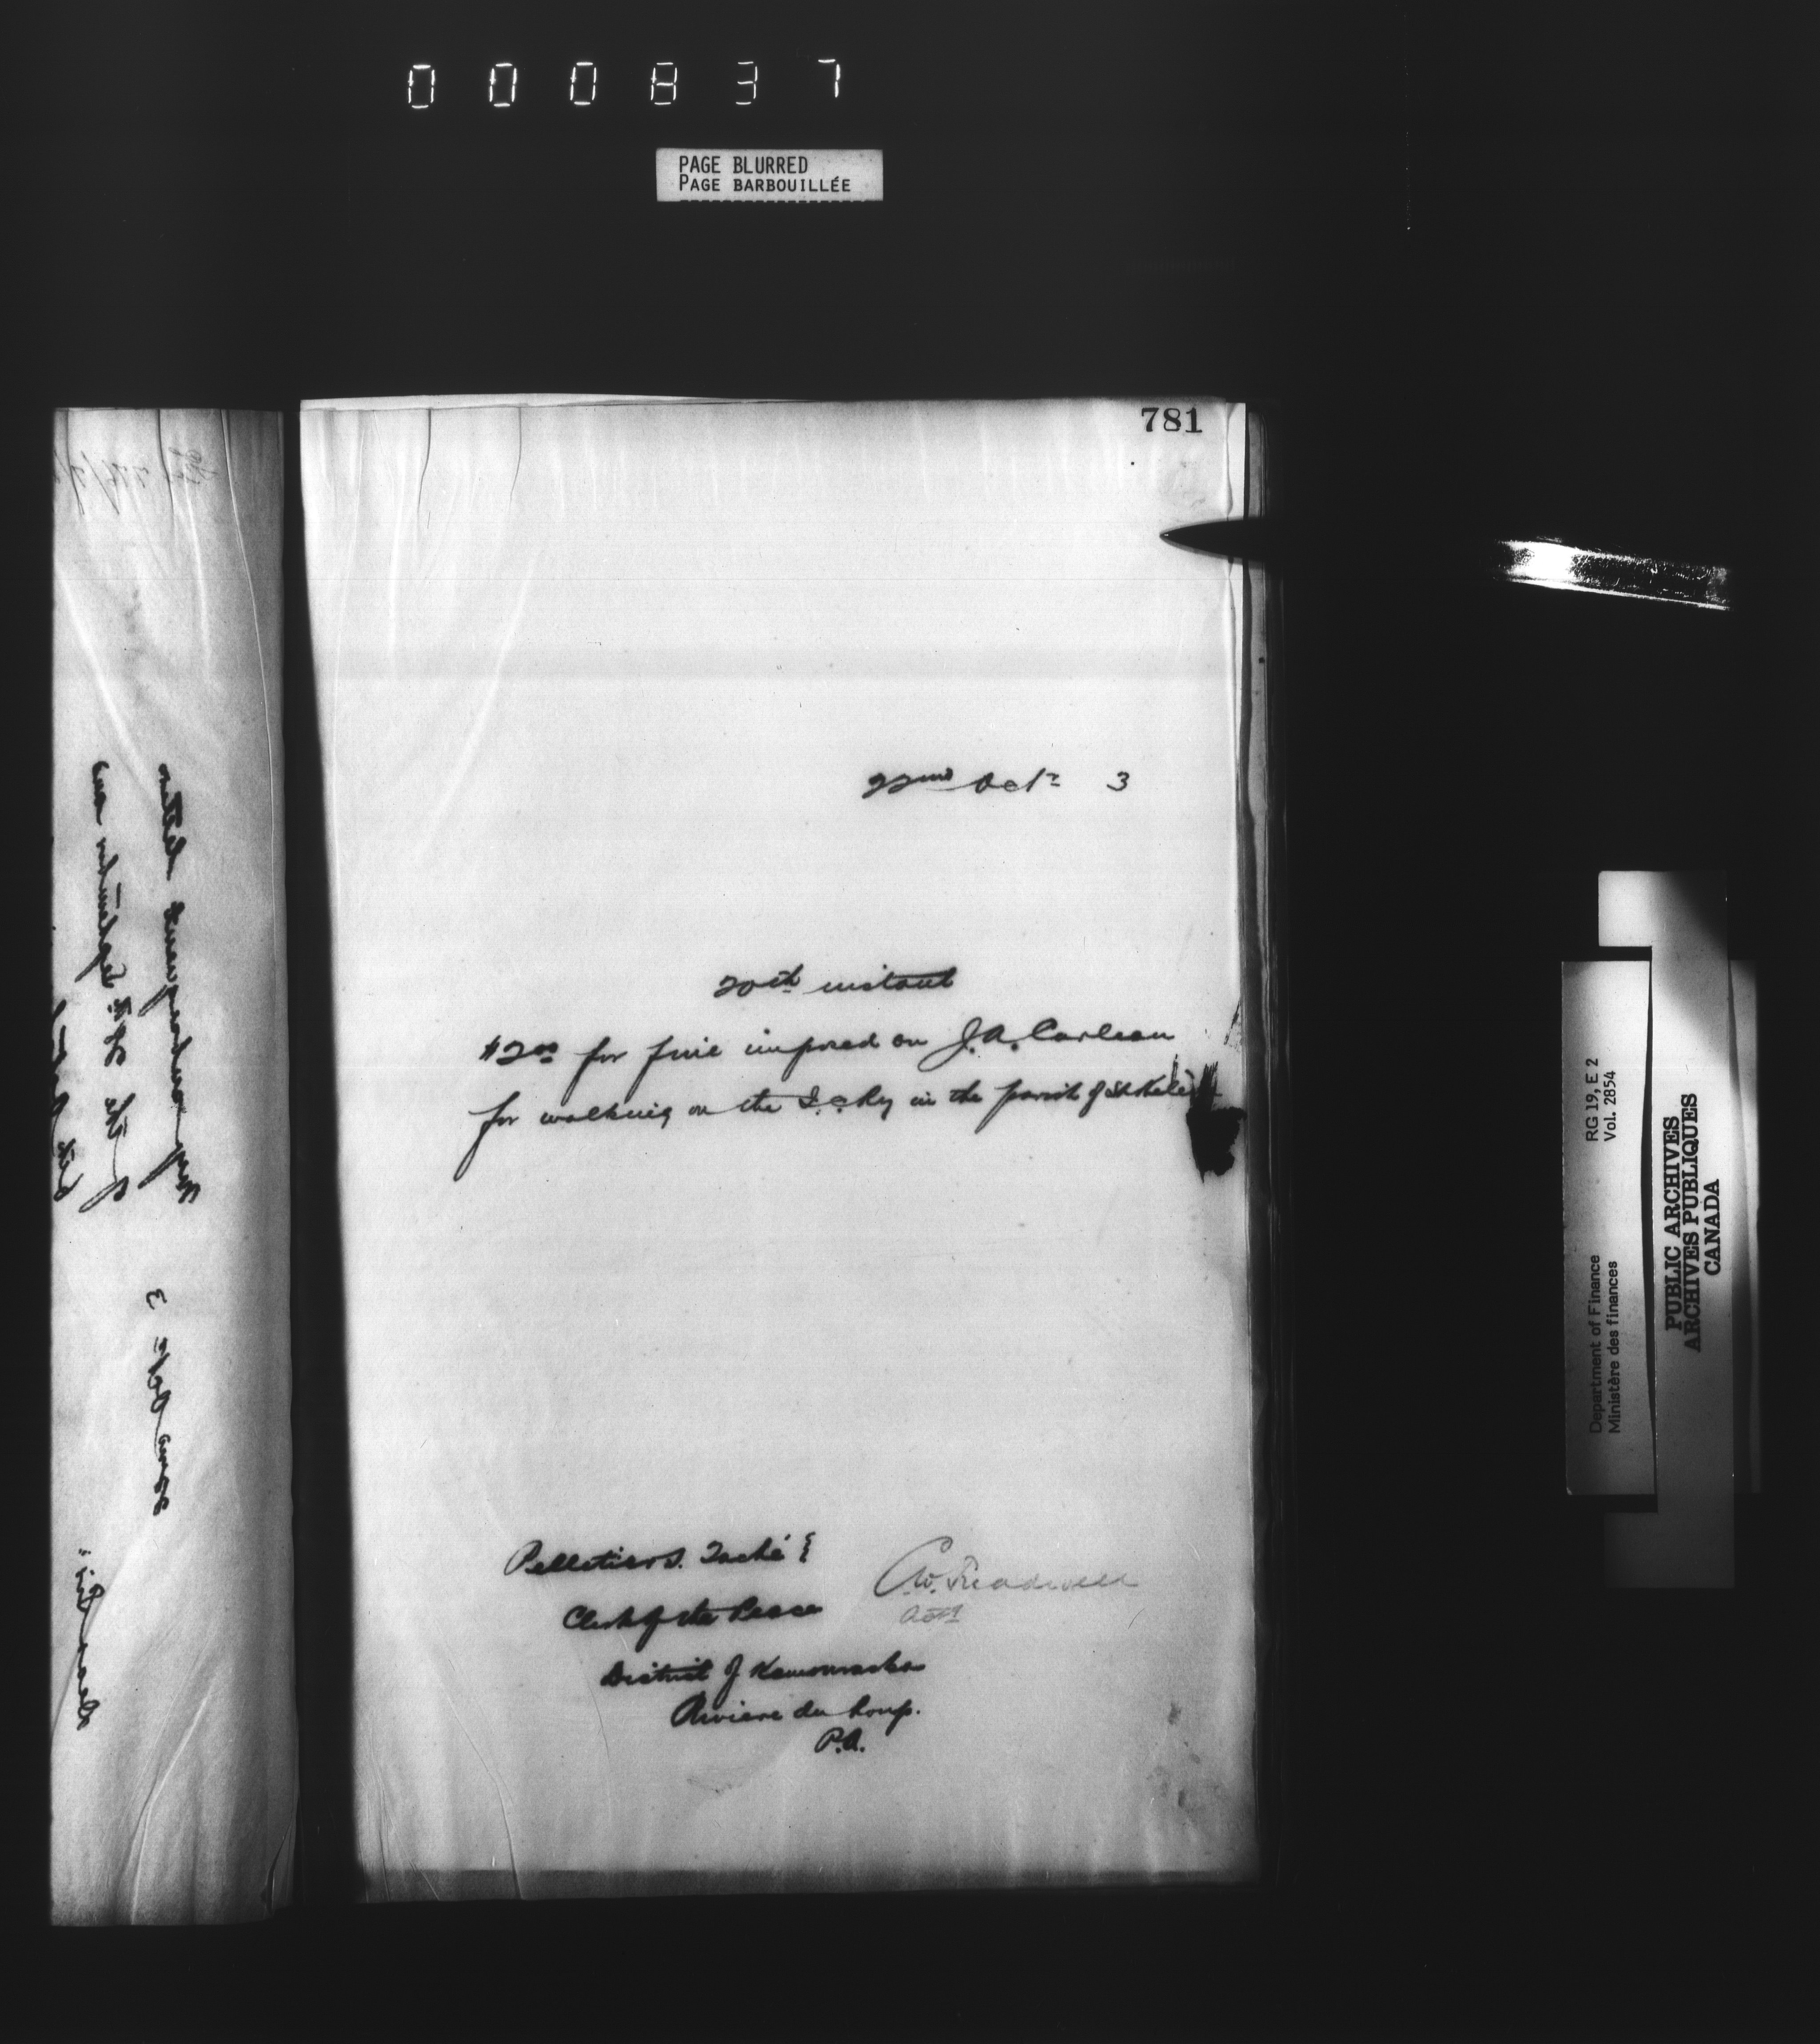 000837
PAGE BLURRED
PAGE BARBOUILLÉE
781
22nd Oct 3
20th instant
$2.00 for fine imposed on J.A. Carleau
for walking on the I.C. Ry in the parish of St
Pelletier & Taché }
Clerk of the Peace
District of Kamouraska
Riviere du Loup.
P.Q.
C.W. Treadwell
RG 19, E 2
Vol. 2854
Department of Finance
Ministère des finances
PUBLIC ARCHIVES
ARCHIVES PUBLIQUES
CANADA
subsequent letter
of the 28th September and
22nd Oct 3
Dear Sir: